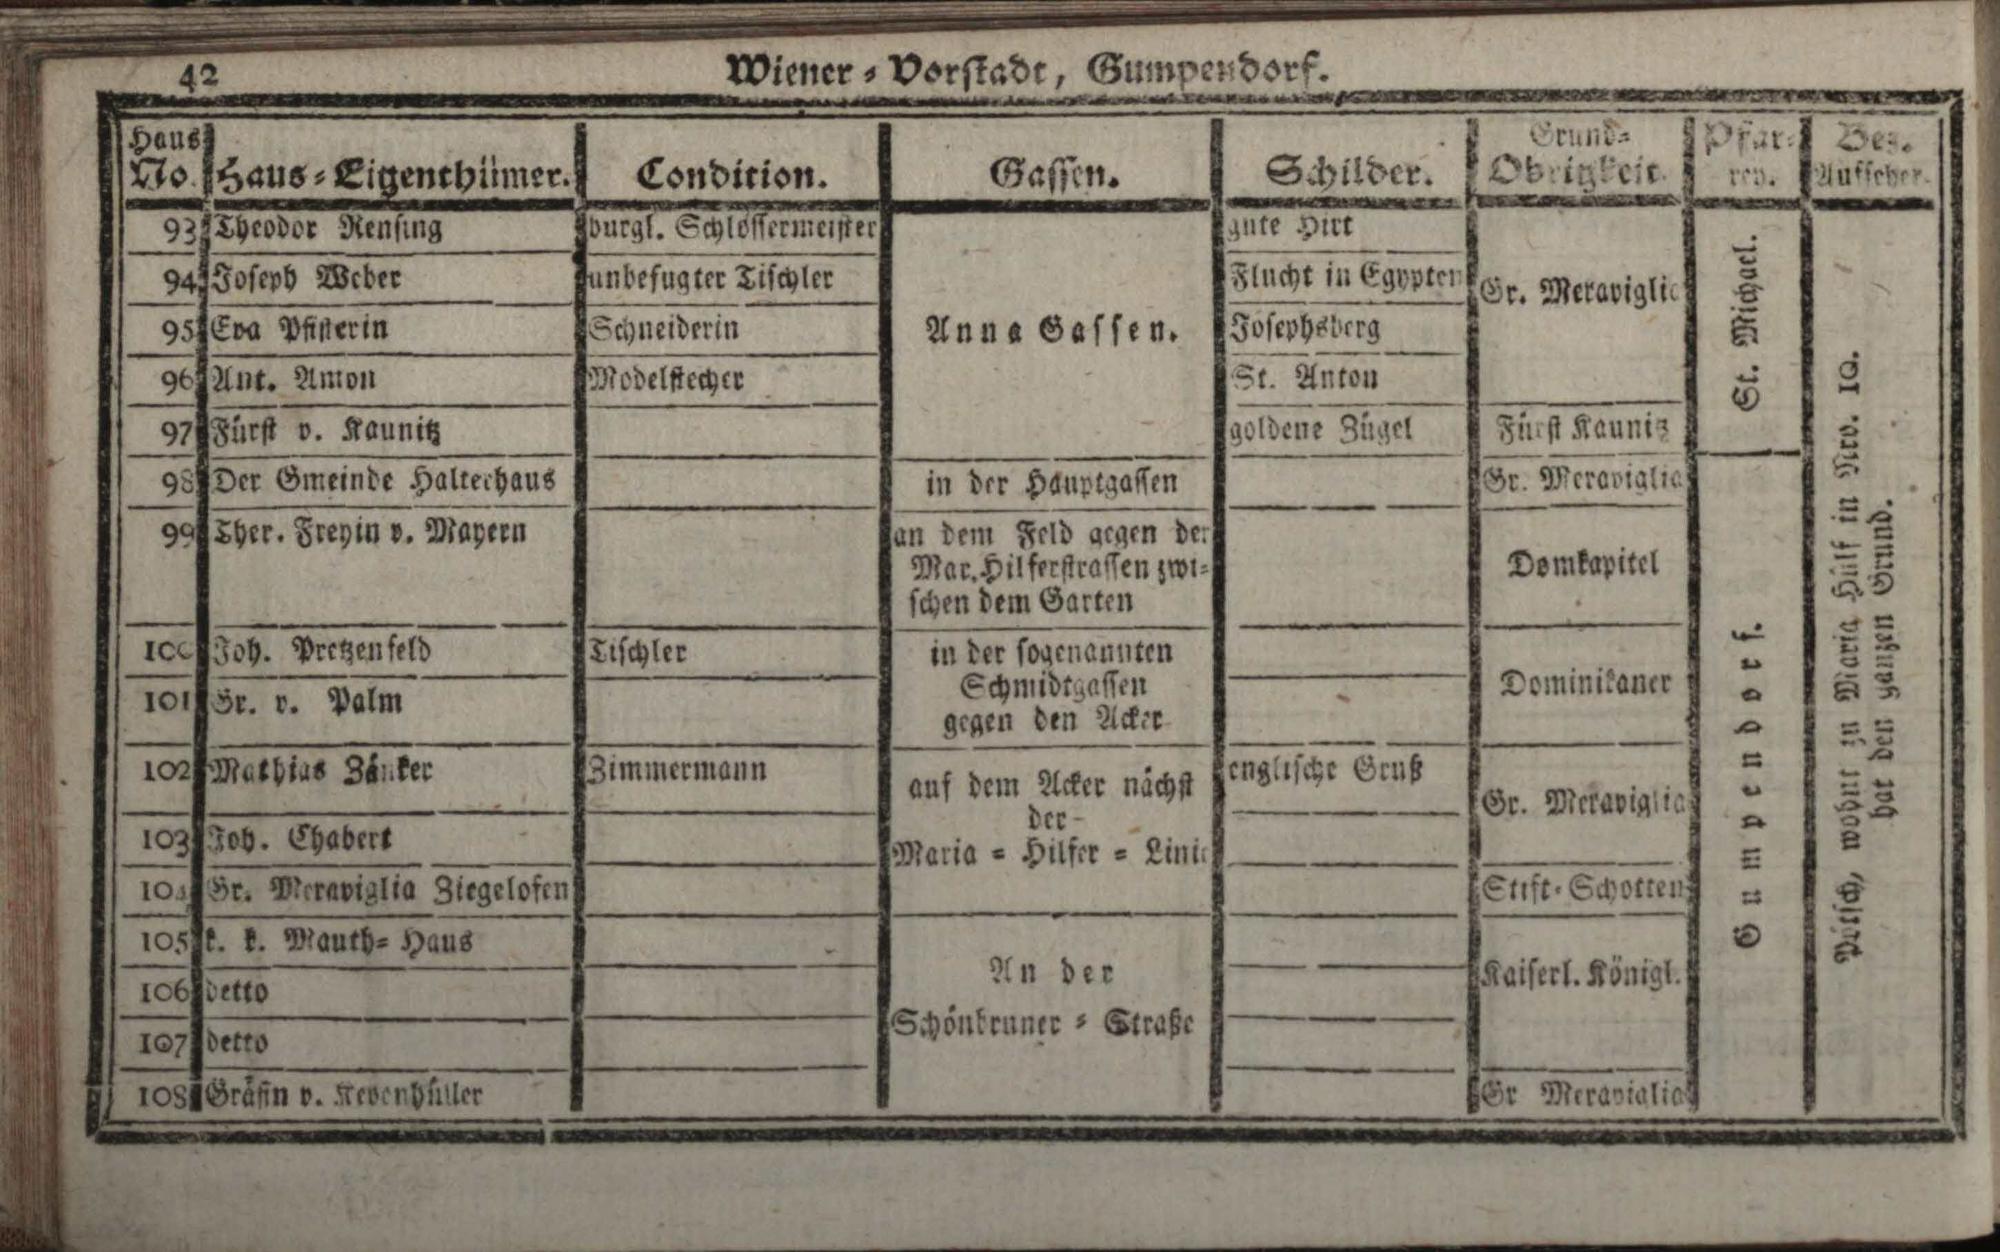 42
Wiener = Vorstadt, Gumpendorf.
Haus No. Haus = Eigenthümer. Condition. Gassen. Schilder. Grund= Obrigkeit. Pfar= rey. Bez. Aufseher.
93 Theodor Rensing burgl. Schlossermeister gute Hirt
94 Joseph Weber unbefugter Tischler Flucht in Egypten Gr. Meraviglia
95 Eva Pfisterin Schneiderin Anna Gassen. Josephsberg
96 Ant. Amon Modelstecher St. Anton
97 Fürst v. Kaunitz goldene Zügel Fürst Kaunitz
St. Michael.
98 Der Gmeinde Halterhaus in der Hauptgassen Gr. Meraviglia
99 Ther. Freyin v. Mayern an dem Feld gegen der
Mar. Hilferstrassen zwi=
schen dem Garten
Domkapitel
100 Joh. Pretzenfeld Tischler in der sogenannten
Schmidtgassen
101 Gr. v. Palm gegen den Acker
Dominikaner
102 Mathias Zänker Zimmermann auf dem Acker nächst englische Gruß
der
103 Joh. Chabert Maria = Hilfer = Linie
Gr. Meraviglia
104 Gr. Meraviglia Ziegelofen Stift=Schotten
105 k. k. Mauth= Haus
106 detto An der Kaiserl. Königl.
107 detto Schönbruner = Straße
108 Gräfin v. Kevenhüller Gr Meraviglia
Gumpendorf.
Pötsch, wohnt zu Maria Hülf in Nro. 10.
hat den ganzen Grund.